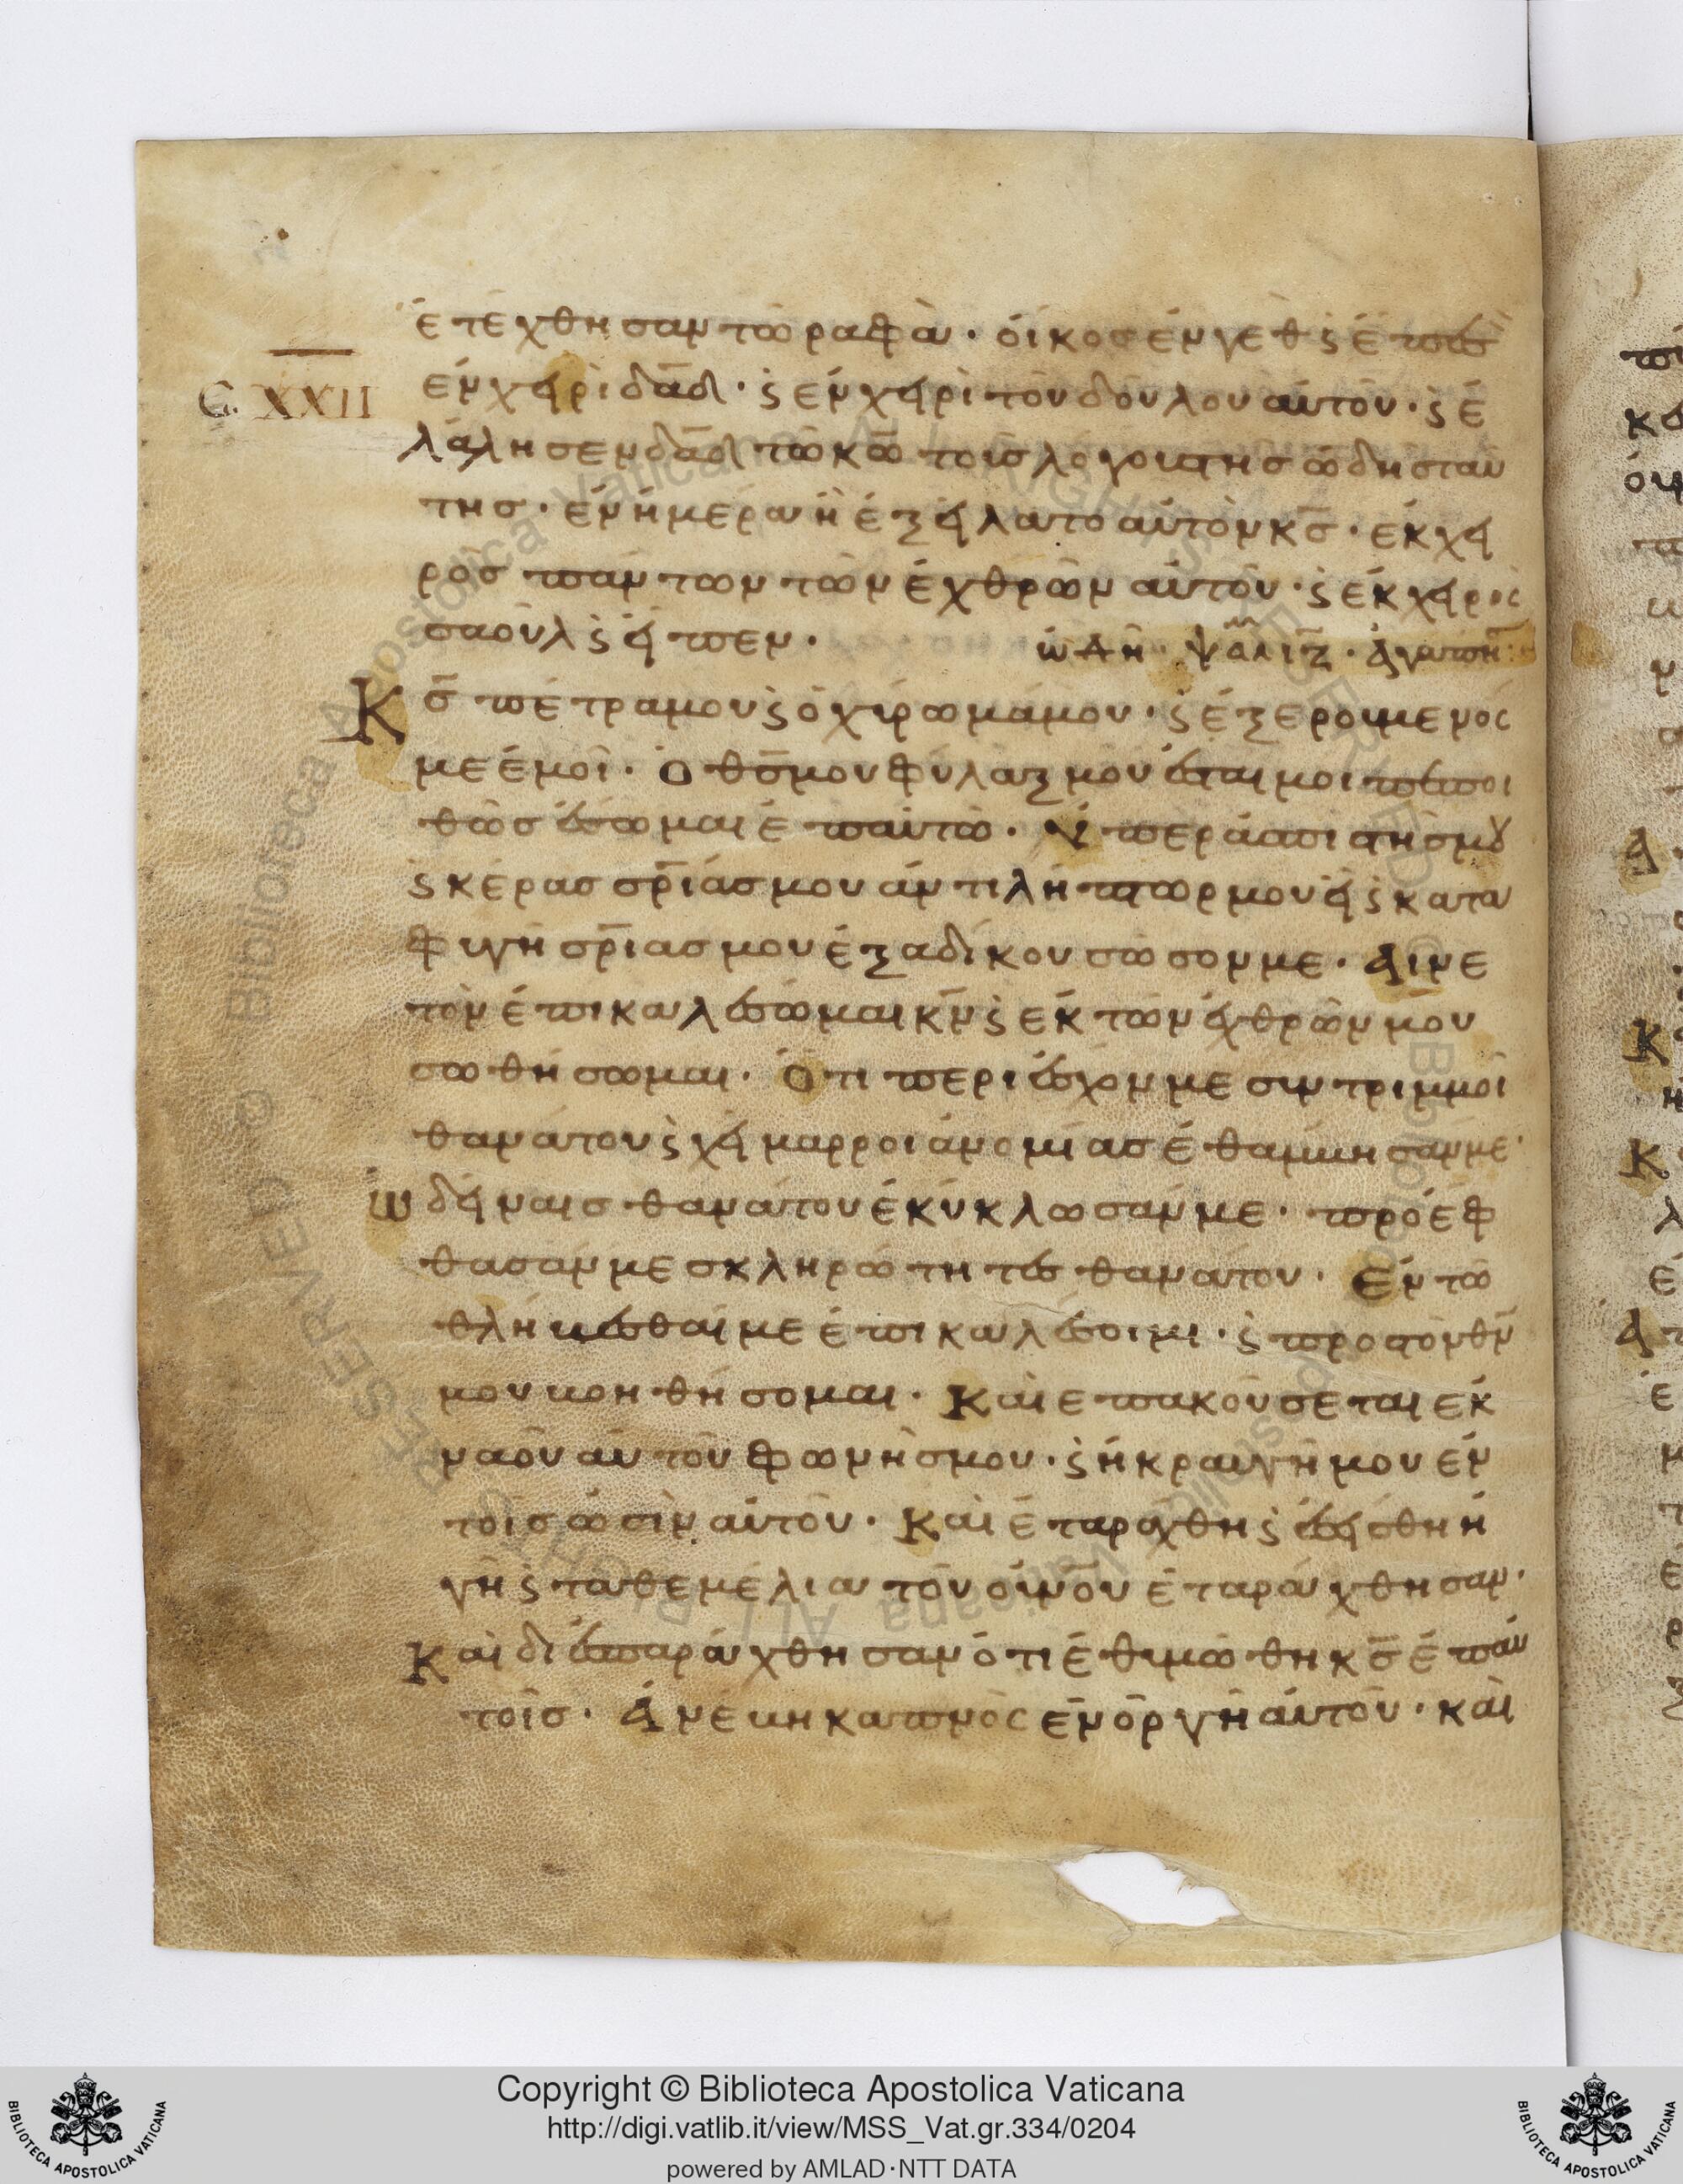 ἐτέχθησαν τῶ ραφὰ · ὀίκοσ ἐν γὲθ ϛ ἔπεσον
C. XXII ἐν χειρὶ δα̅δ · ϛ ἐν χειρὶ τῶν δούλων αὐτοῦ · ϛ ἐ
λάλησεν δα̅δ τῶ κ̅ω τοῖσ λόγουσ τῆσ ὠδῆσ ταύ
τησ · ἐν ἡμέρα ἧ ἐξείλατο αὐτὸν κ̅σ · ἐκ χει
ρὸσ πάντων τῶν ἐχθρῶν αὐτοῦ · ϛ ἐκ χειρὸς
σαοὺλ ϛ εἶπεν · ὠδὴ ψαλ ιζ · ἀγαπή
Κ̅σ πέτρα μου ϛ ὀχύρωμά μου · ϛ ἐξερούμενός
με ἐμοί · Ὁ θ̅σ μου φύλαξ μου ἔσται μοι πεποι
θὼσ ἔσωμαι ἐπ αὐτῶ · Ὑπερασπιστήσ μȣ
ϛ κέρασ σρ̅ίασ μου ἀντιλήπτωρ μου εἶ ϛ κατα
φυγὴ σρ̅ίασ μου ἐξ αδίκου σῶσον με · Αἰνε
τὸν ἐπικαλέσωμαι κ̅ν ϛ ἐκ τῶν ἐχθρῶν μου
σωθήσωμαι · Ὅτι περιέσχον με συντριμμοὶ
θανάτου ϛ χείμαρροι ἀνομίασ ἐθαμβησάν με ·
Ὠδείναισ θανάτου ἐκύκλωσάν με · προέφ
θασάν με σκληρώτητεσ θανάτου · Ἐν τῶ
θλήβεσθαί με ἐπικαλέσοιμι · ϛ προσ τὸν θ̅ν
μου βοηθήσομαι · Καὶ επακούσεται ἐκ
ναοῦ αὐτοῦ φωνῆσ μου · ϛ ἡ κραυγή μου ἐν
τοῖσ ὠσὶν αὐτοῦ · Καὶ ἐταράχθη ϛ ἐσείσθη ἡ
γῆ ϛ τὰ θεμέλια τοῦ οὐν̅ου ἐταράχθησαν ·
Καὶ διέσπαράχθησαν ὅτι ἐθυμώθη κ̅σ ἐπ αὐ
τοῖσ · Ἀνέβη καπνὸς ἐν ὀργῆ αὐτοῦ · καὶ
Copyright © Biblioteca Apostolica Vaticana
http://digi.vatlib.it/view/MSS_Vat.gr.334/0204
powered by AMLAD·NTT DATA
BIBLIOTECA APOSTOLICA VATICANA
BIBLIOTECA APOSTOLICA VATICANA